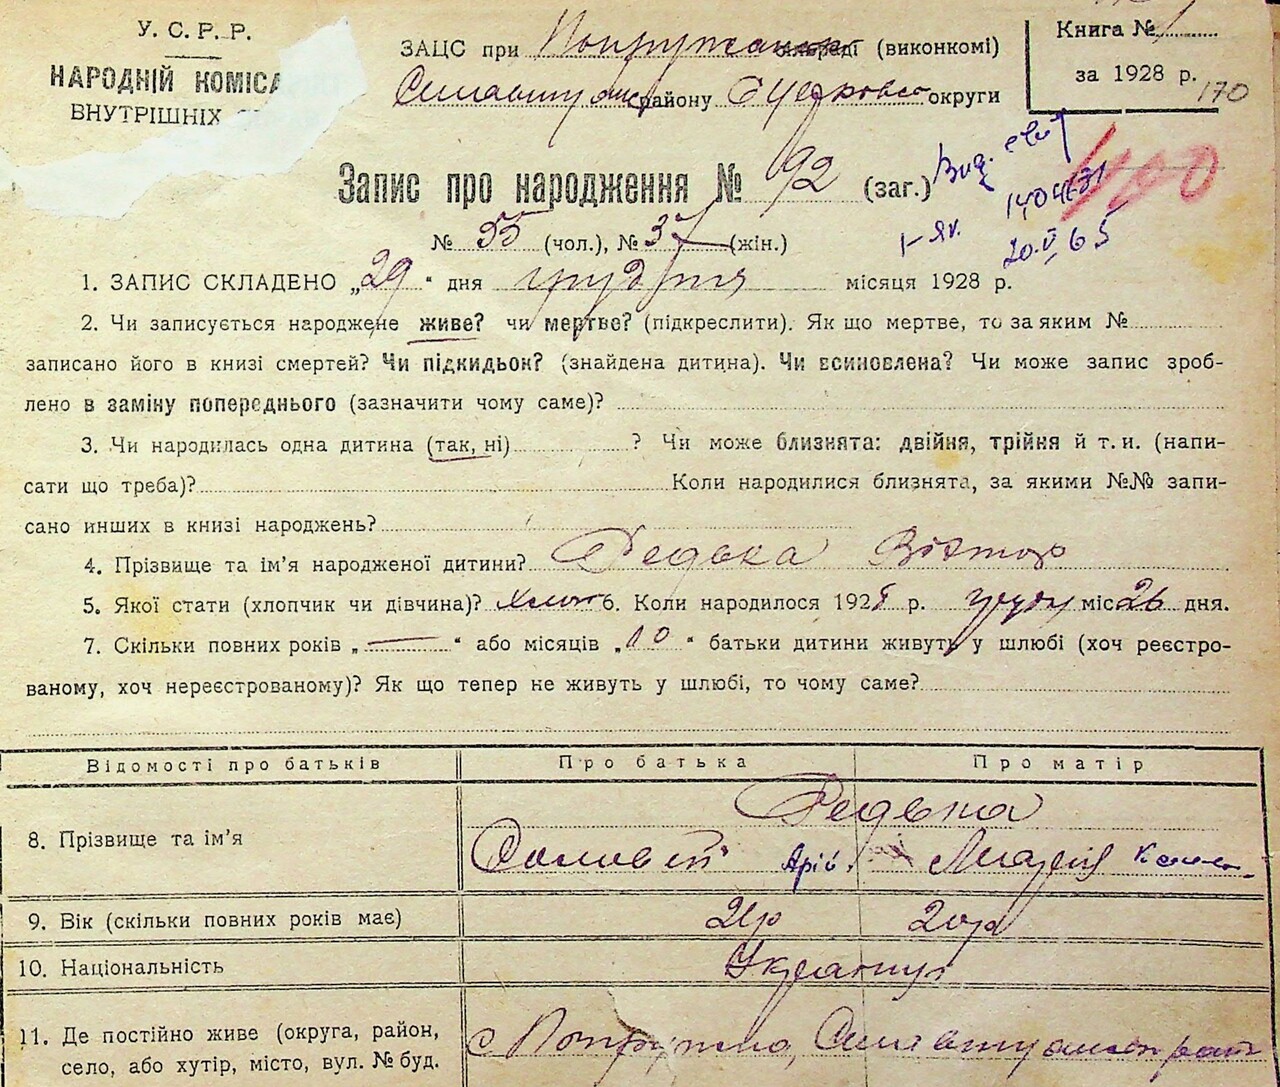 У. С. Р. Р.
НАРОДНІЙ КОМІСА
ВНУТРІШНІХ
ЗАЦС при сільраді (виконкомі)
району округи
Книга №
за 1928 р.
170
Запис про народження № 92 (заг.)
Вид. свід
1-ЯК.
20.V 65
400
№ 55 (чол.), № 37 (жін.)
1. ЗАПИС СКЛАДЕНО „29“ дня грудня місяця 1928 р.
2. Чи записується народжене живе? чи мертве? (підкреслити). Як що мертве, то за яким №
записано його в книзі смертей? Чи підкидьок? (знайдена дитина). Чи всиновлена? Чи може запис зроб-
лено в заміну попереднього (зазначити чому саме)?
3. Чи народилась одна дитина (так, ні) ? Чи може близнята: двійня, трійня й т. и. (напи-
сати що треба)? Коли народилися близнята, за якими №№ запи-
сано инших в книзі народжень?
4. Прізвище та ім'я народженої дитини? Редька Віктор
5. Якої стати (хлопчик чи дівчина)? Хлоп 6. Коли народилося 1928 р. груд міс 26 дня.
7. Скільки повних років „—“ або місяців „10“ батьки дитини живуть у шлюбі (хоч реєстро-
ваному, хоч нереєстрованому)? Як що тепер не живуть у шлюбі, то чому саме?
Відомості про батьків Про батька Про матір
8. Прізвище та ім'я Редька
Соловей Арій. Марія
9. Вік (скільки повних років має) 21р 20р
10. Національність Українці
11. Де постійно живе (округа, район,
село, або хутір, місто, вул. № буд.